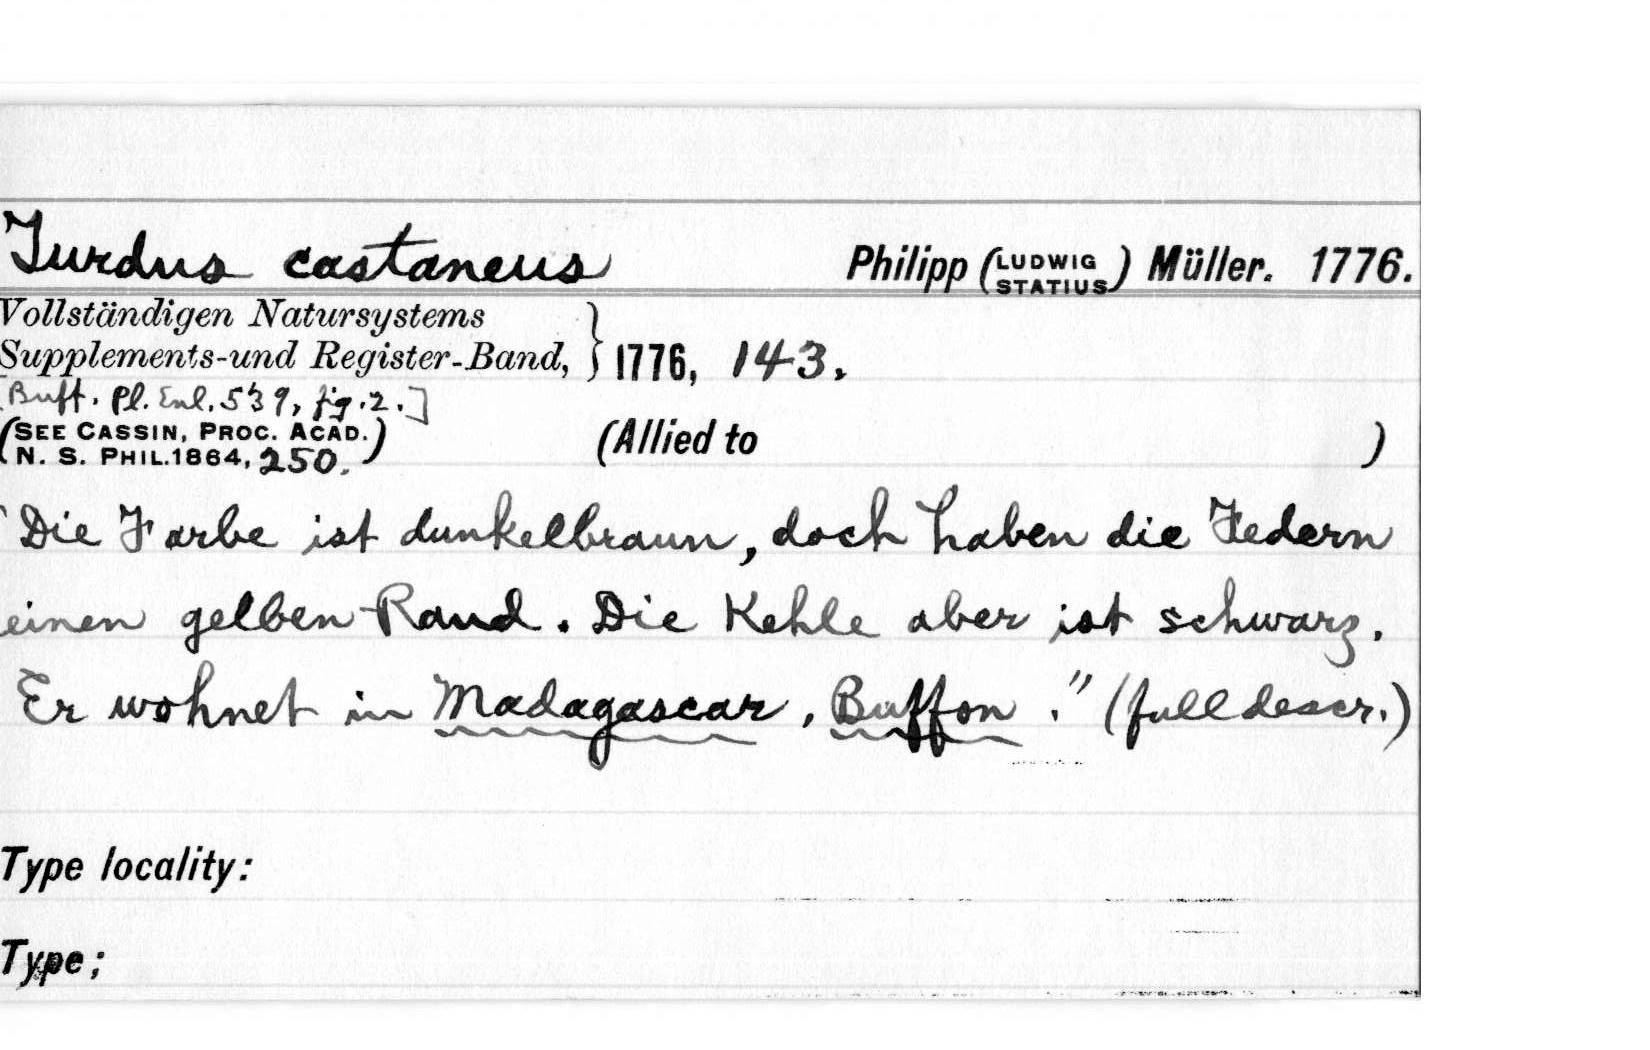 Turdus castaneus Philipp (LUDWIG STATIUS) Müller. 1776.
Vollständigen Natursystems
Supplements-und Register-Band, } 1776, 143.
[Buff. Pl. Enl. 539, fig. 2.]
(SEE CASSIN, PROC. ACAD.
N. S. PHIL. 1864, 250.) (Allied to )
"Die Farbe ist dunkelbraun, doch haben die Federn
einen gelben Rand. Die Kehle aber ist schwarz.
Er wohnet in Madagascar, Buffon." (full descr.)
Type locality:
Type;